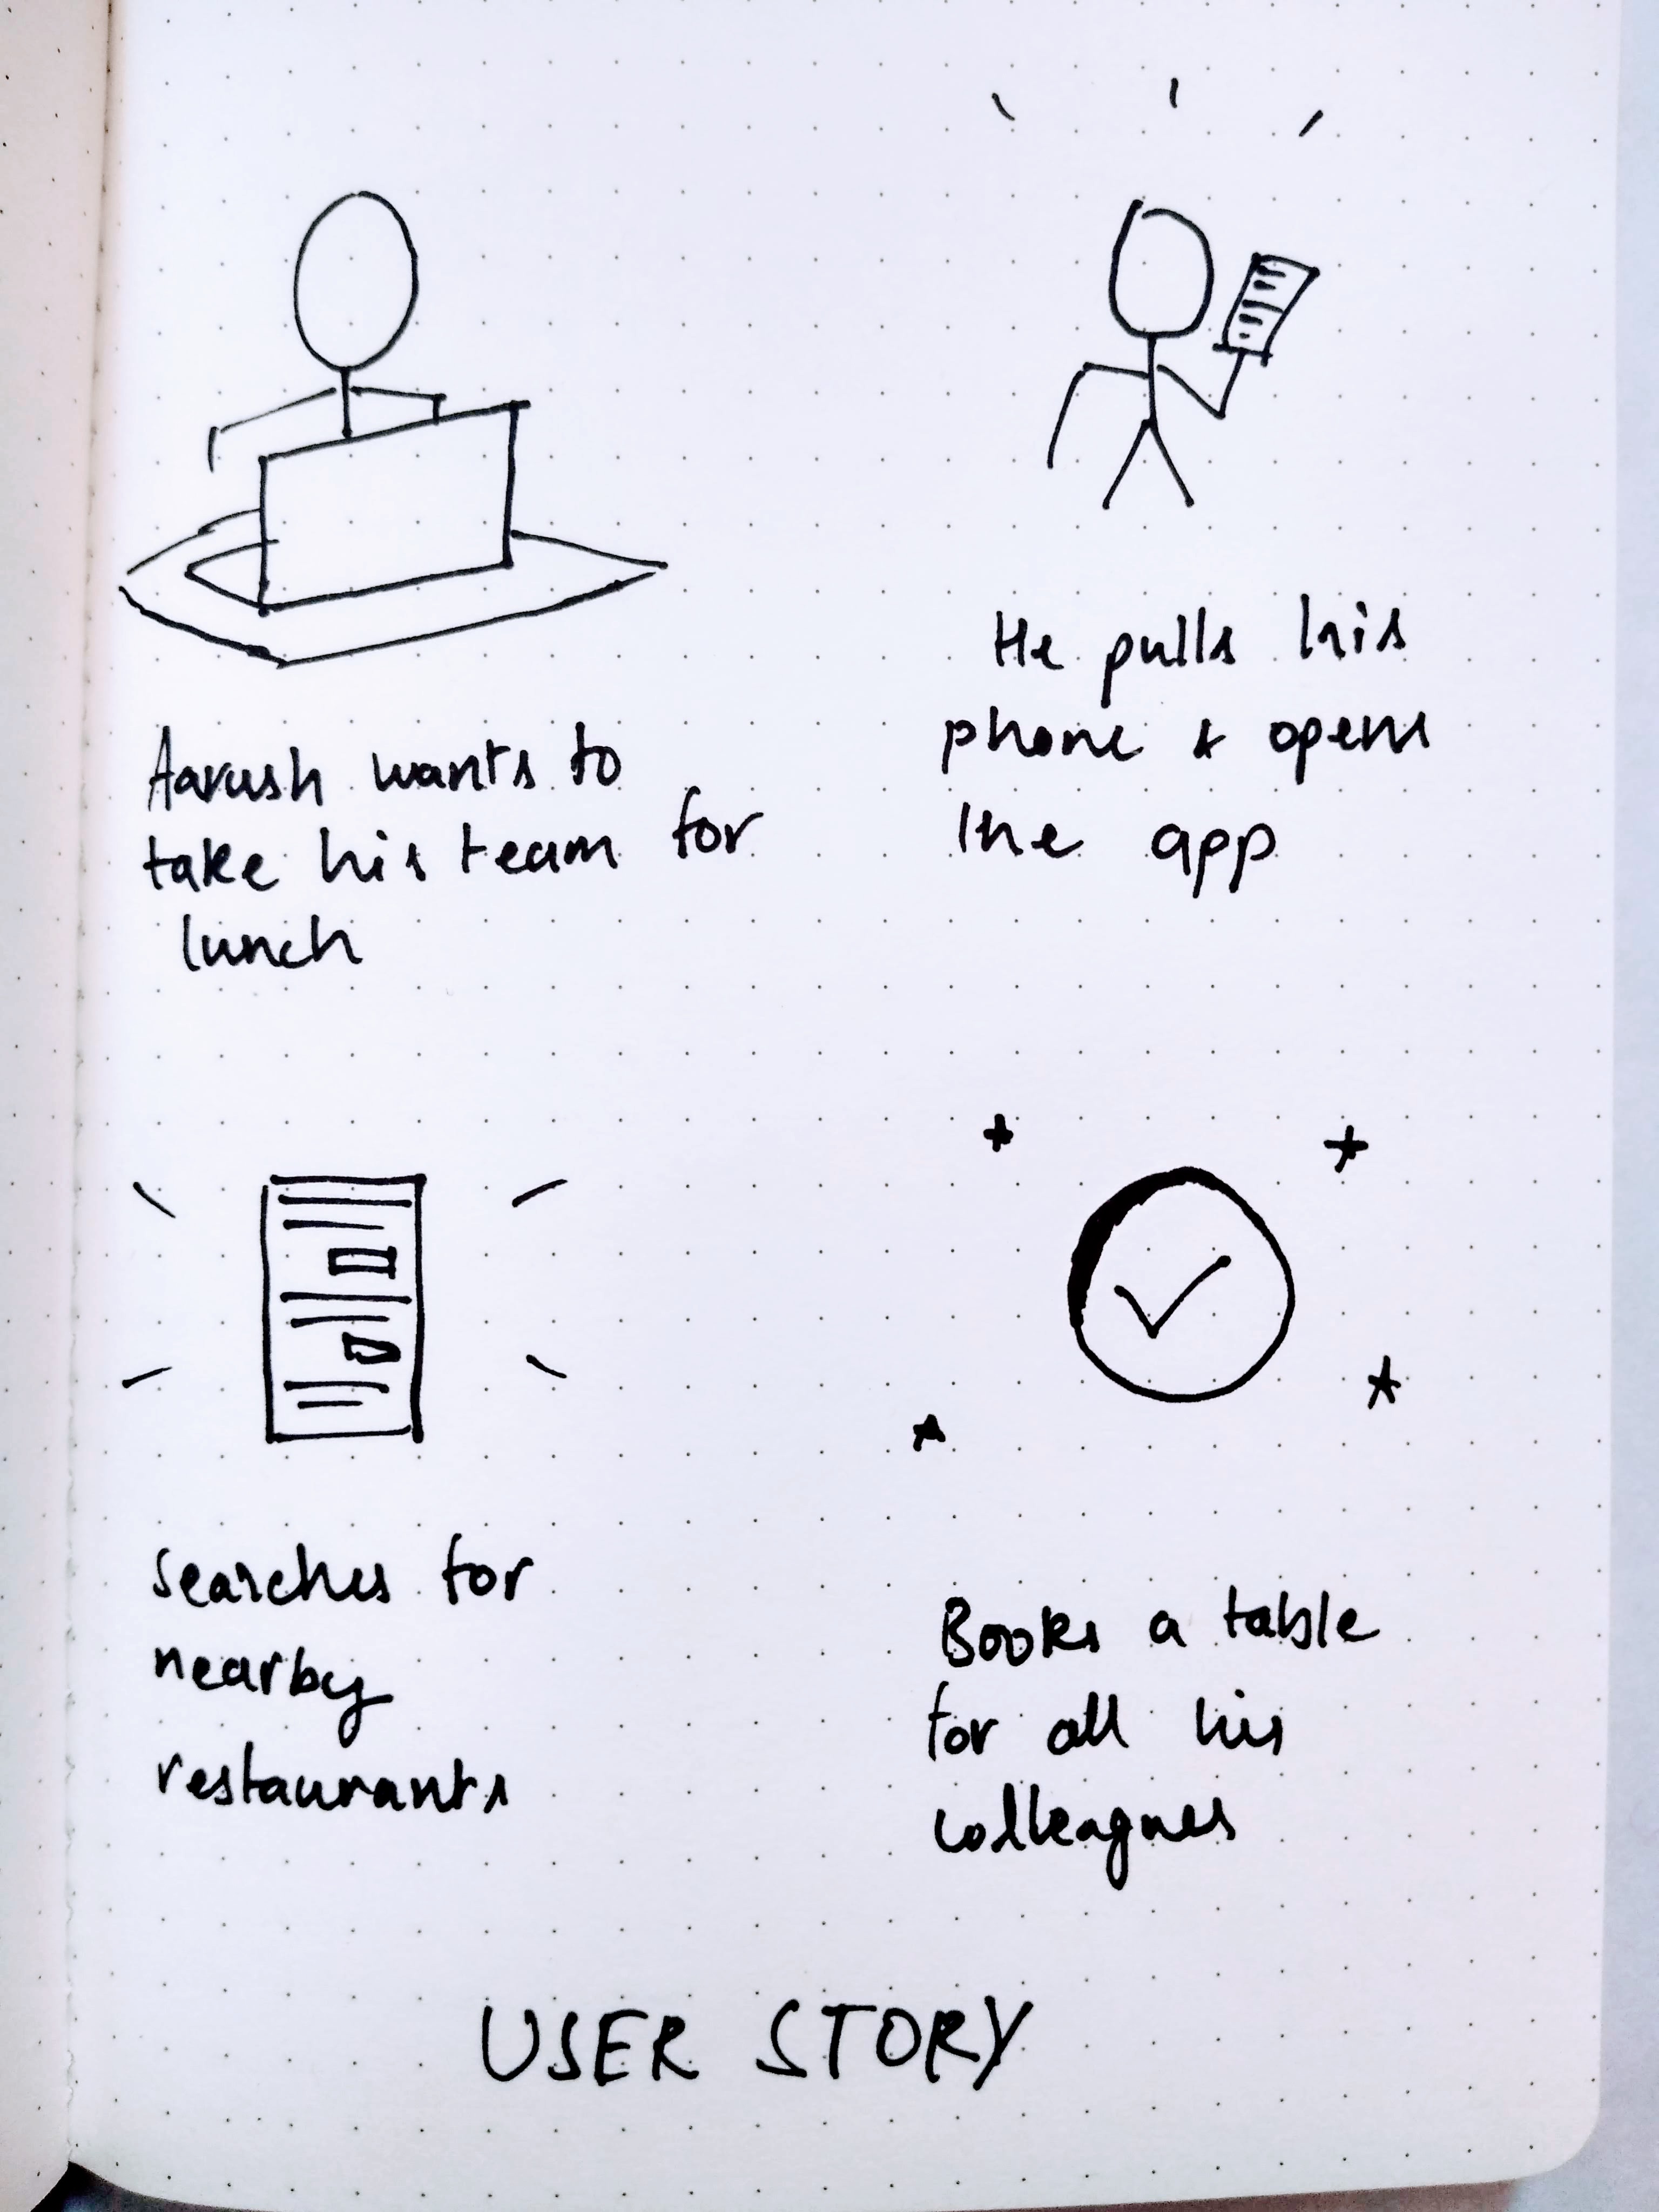 Aarush wants to
take his team for
lunch
He pulls his
phone & opens
the app
Searches for
nearby
restaurants
Books a table
for all his
colleagues
USER STORY